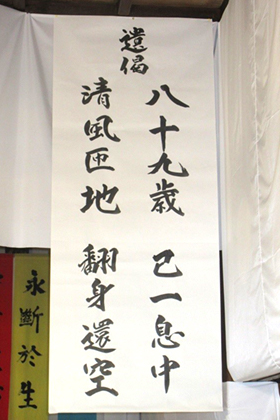 遺偈
八十九歳 己一息中
清風匝地 翻身還空
永斷於生